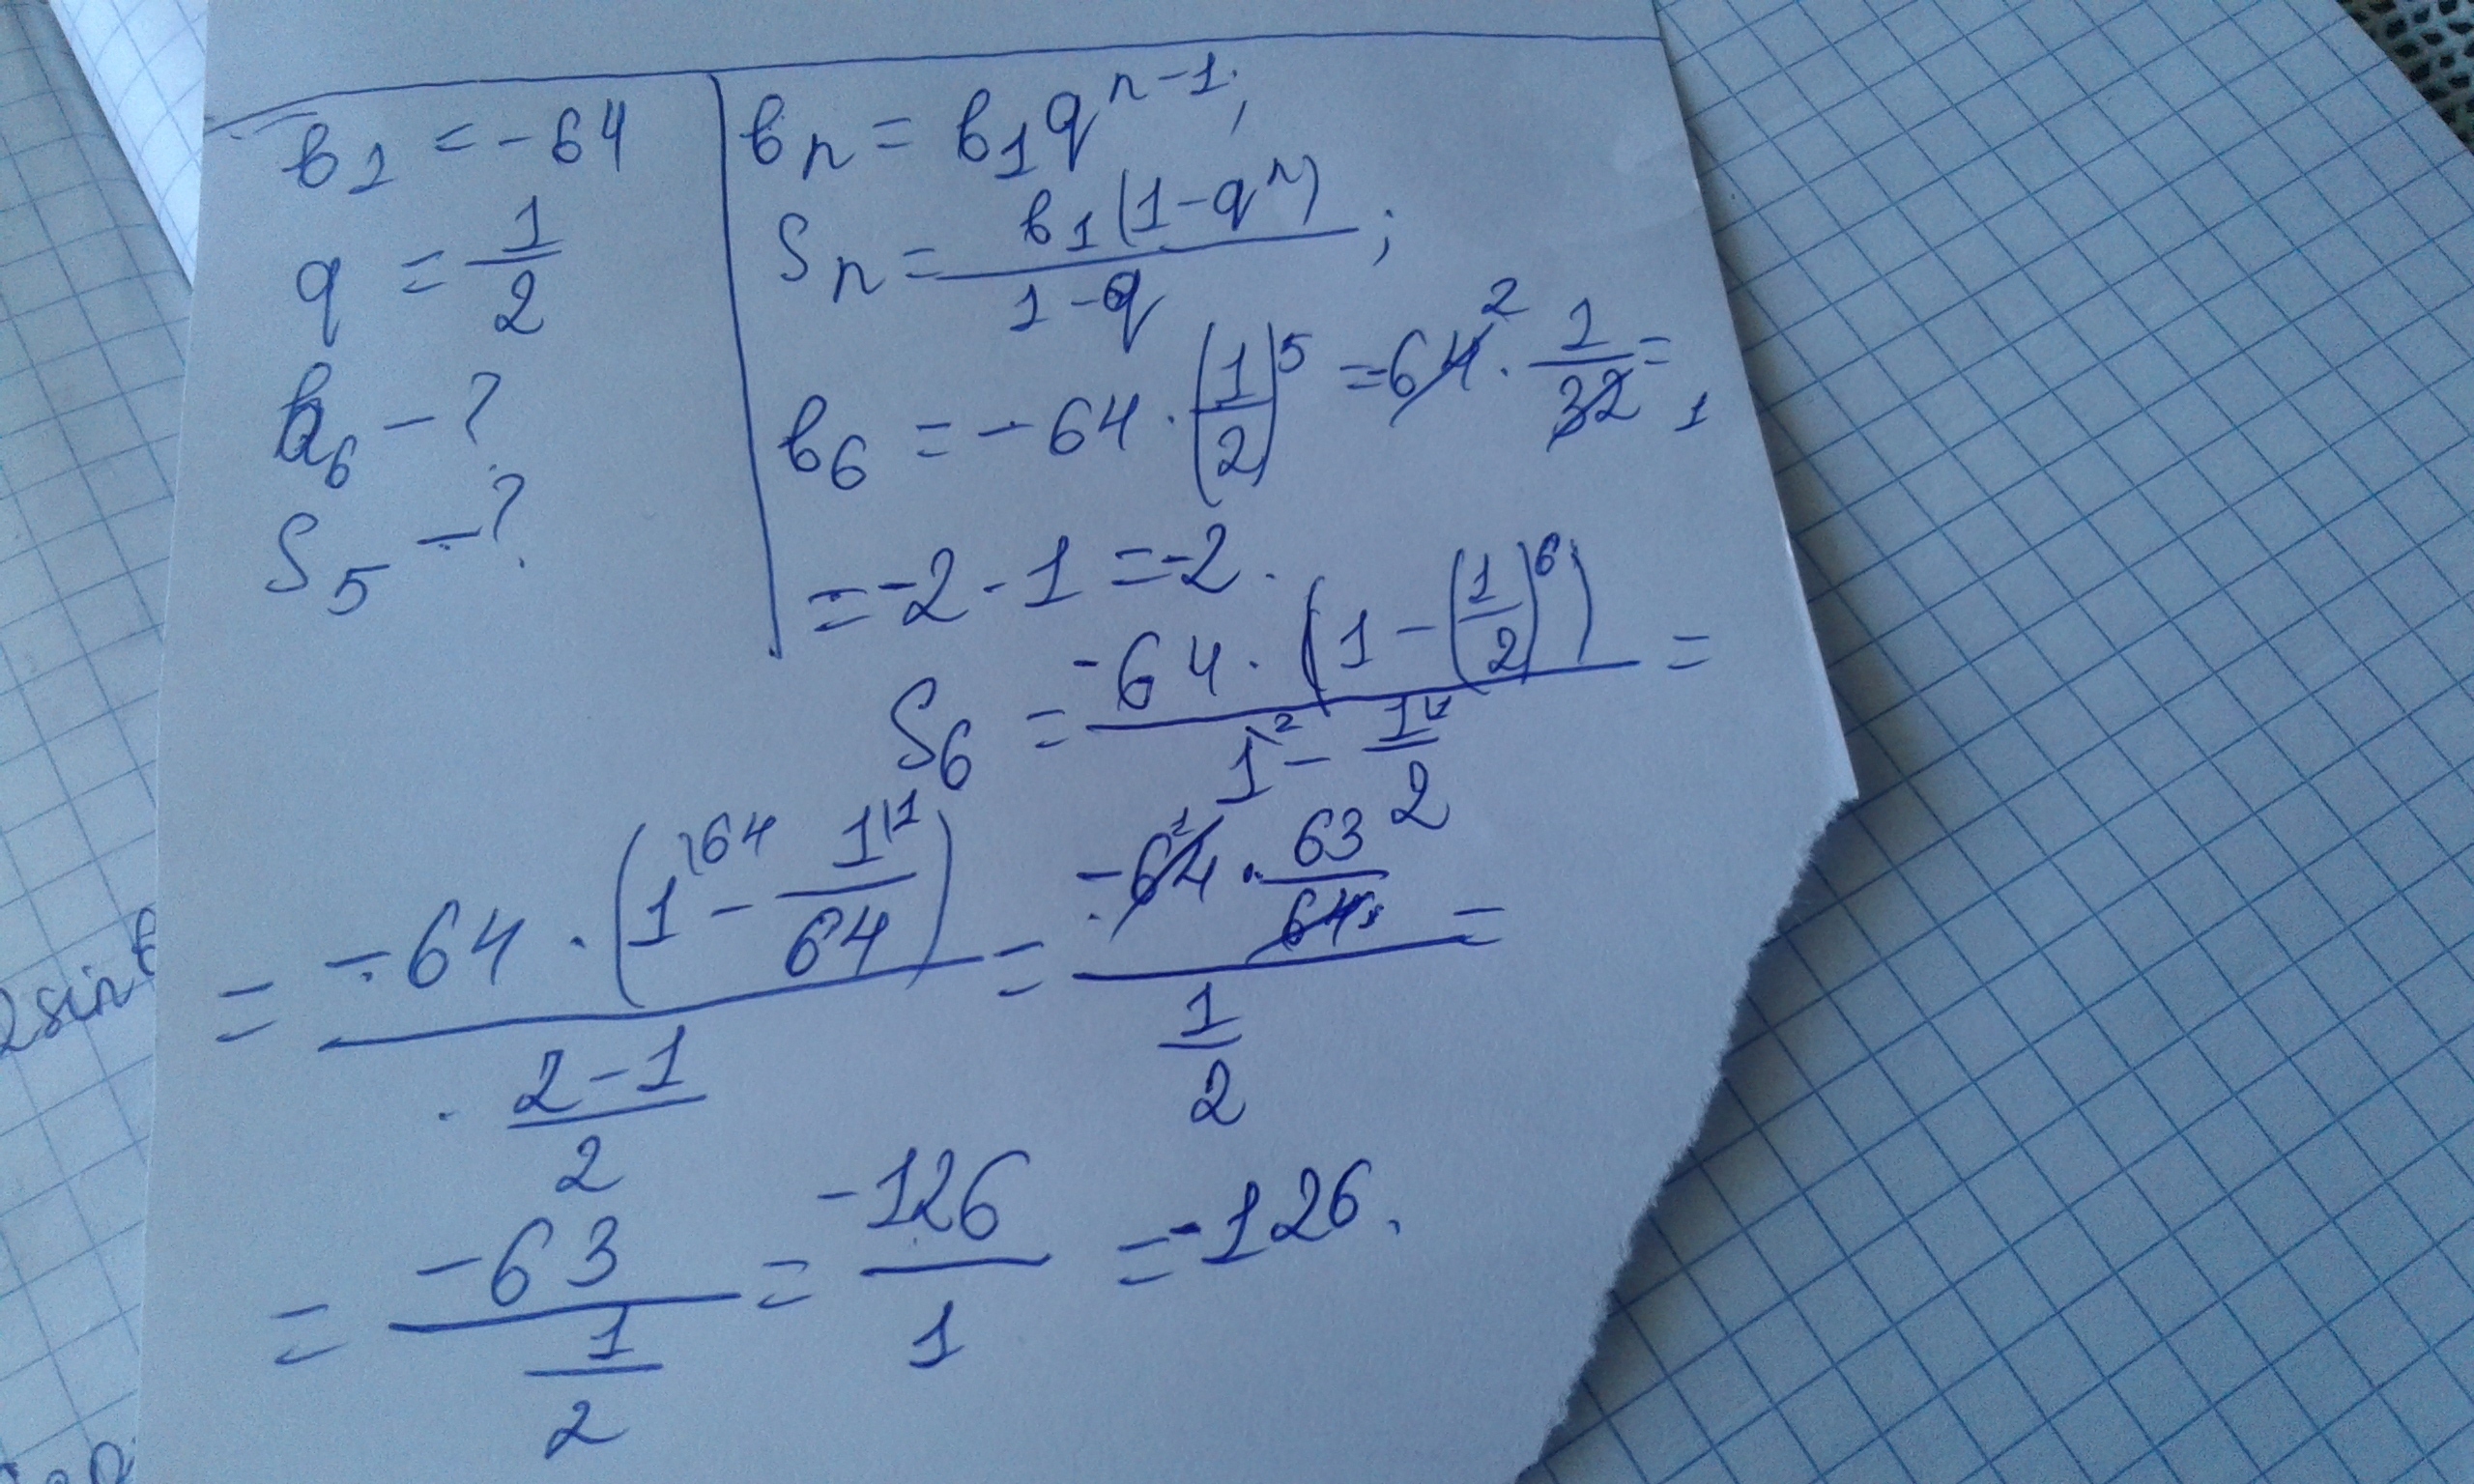 b₁ = -64
q = 1/2
b₆ - ?
S₅ - ?
bₙ = b₁qⁿ⁻¹;
Sₙ = b₁(1-qⁿ) / 1-q ;
b₆ = -64 · (1/2)⁵ = -64² · 1/32₁ =
= -2 · 1 = -2.
S₆ = -64 · (1 - (1/2)⁶) / 1\² - 1\¹/2 =
= -64 · (1\⁶⁴ - 1\¹/64) / 2-1/2 = -64¹ · 63/64₁ / 1/2 =
= -63 / 1/2 = -126/1 = -126.
2sin